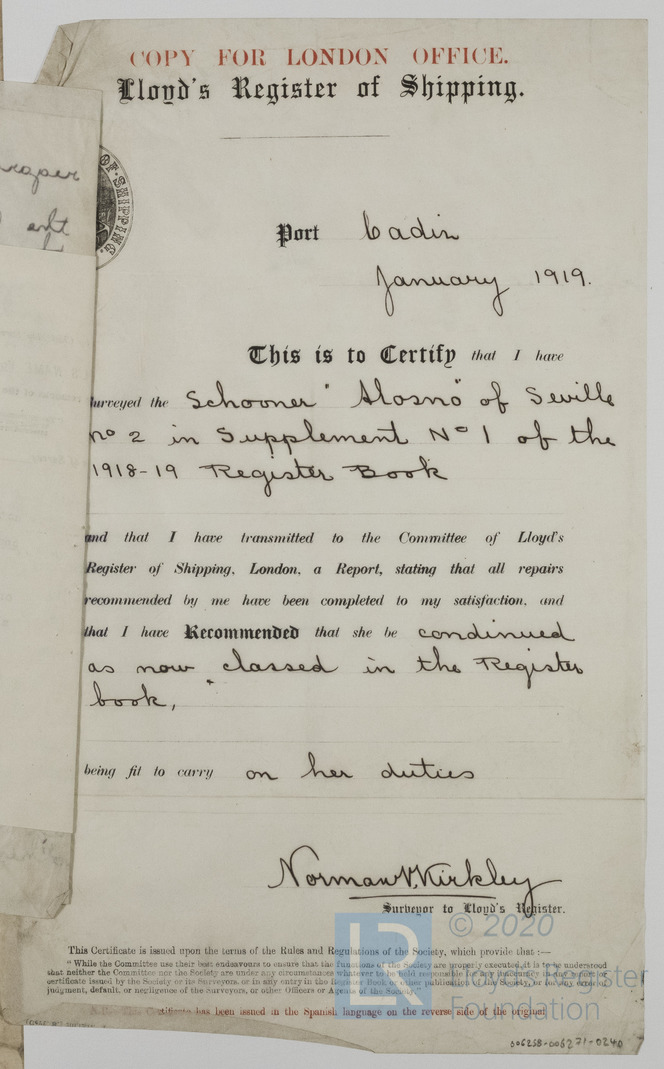 COPY FOR LONDON OFFICE.
Lloyd's Register of Shipping.
OF SHIPPING
Port Cadiz
January 1919.
This is to Certify that I have
surveyed the Schooner "Alosno" of Seville
no 2 in Supplement No 1 of the
1918-19 Register Book
and that I have transmitted to the Committee of Lloyd's
Register of Shipping, London, a Report, stating that all repairs
recommended by me have been completed to my satisfaction, and
that I have Recommended that she be condinued
as now classed in the Register
book,
being fit to carry on her duties
Norman V. Kirkley
Surveyor to Lloyd's Register.
This Certificate is issued upon the terms of the Rules and Regulations of the Society, which provide that :—
"While the Committee use their best endeavours to ensure that the functions of the Society are properly executed, it is to be understood
that neither the Committee nor the Society are under any circumstances whatever to be held responsible for any inaccuracy in any report or
certificate issued by the Society or its Surveyors, or in any entry in the Register Book or other publication of the Society, or for any error of
judgment, default, or negligence of the Surveyors, or other Officers or Agents of the Society."
Certificate has been issued in the Spanish language on the reverse side of the original
© 2020
Lloyd's Register
Foundation
006258-006271-0240